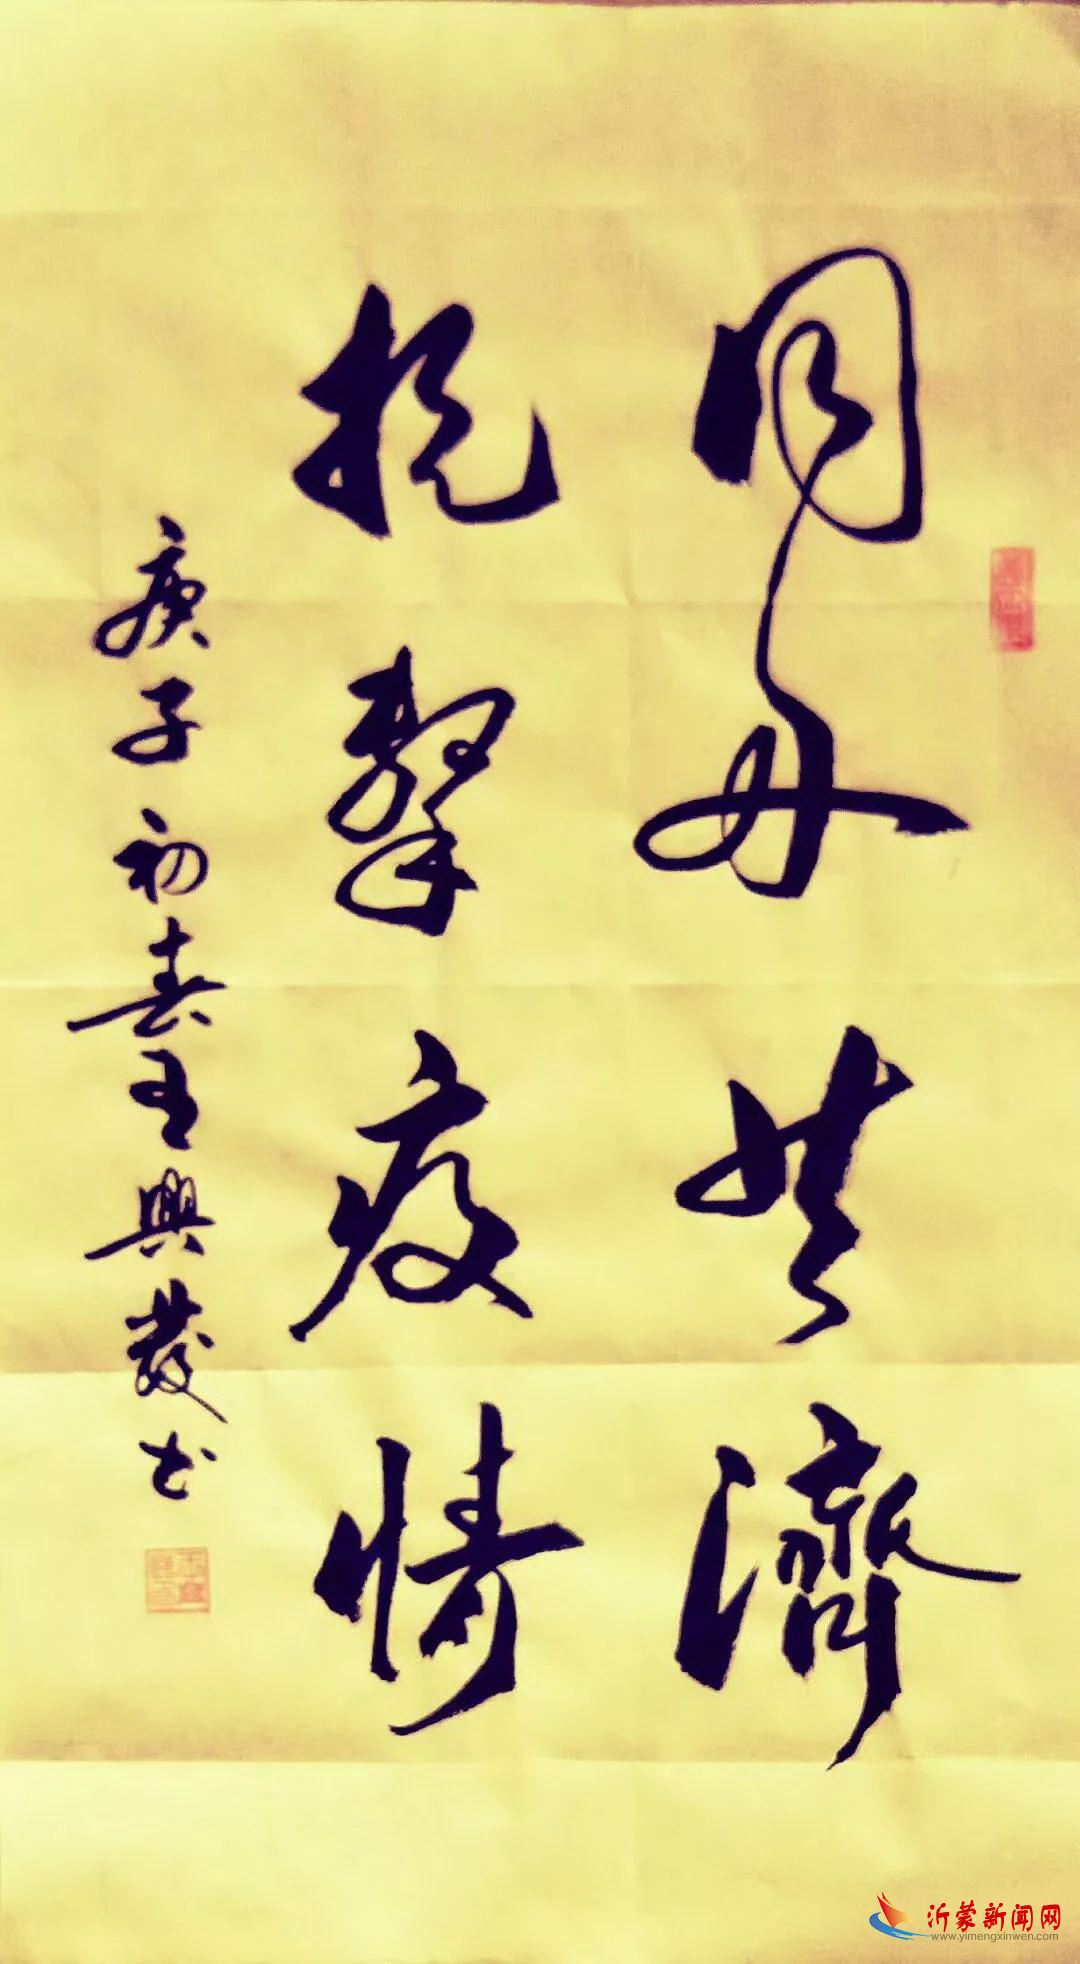 同舟共濟
抗擊疫情
庚子初春王興發书
沂蒙新闻网
www.yimengxinwen.com